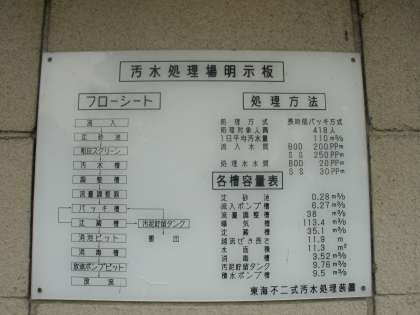 汚水処理場明示板
フローシート
流入
沈砂池
粗目スクリーン
汚水槽
調整槽
流量調整器
バッキ槽
沈澱槽
汚泥貯留タンク
搬出
消泡ピット
消毒槽
放流ポンプピット
放流
処理方法
処理方式 長時間バッキ方式
処理対象人員 418人
1日平均汚水量 110m³/b
流入水質 BOD 200PPm
SS 250PPm
処理水水質 BOD 20PPm
SS 30PPm
各槽容量表
沈砂池 0.28m³/b
流入ポンプ槽 6.27m³/b
流量調整槽 38m³/b
曝気槽 113.4m³/b
沈澱槽 35.1m³/b
越流ぜき長さ 11.9m
水面積 11.3m²
消毒槽 3.52m³/b
汚泥貯留タンク 9.76m³/b
積水ポンプ槽 9.5m³/b
東海不二式汚水処理装置